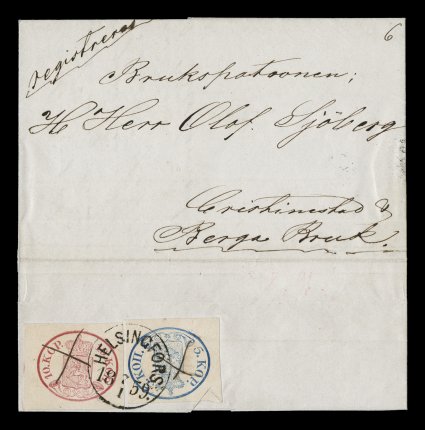 registreras
6
Brukspatronen;
H Herr Olof Sjöberg
Cristinestad &
Berga Bruk.
10. KOP.
HELSINGFORS
18 59.
1
5. KOP.
КОП.